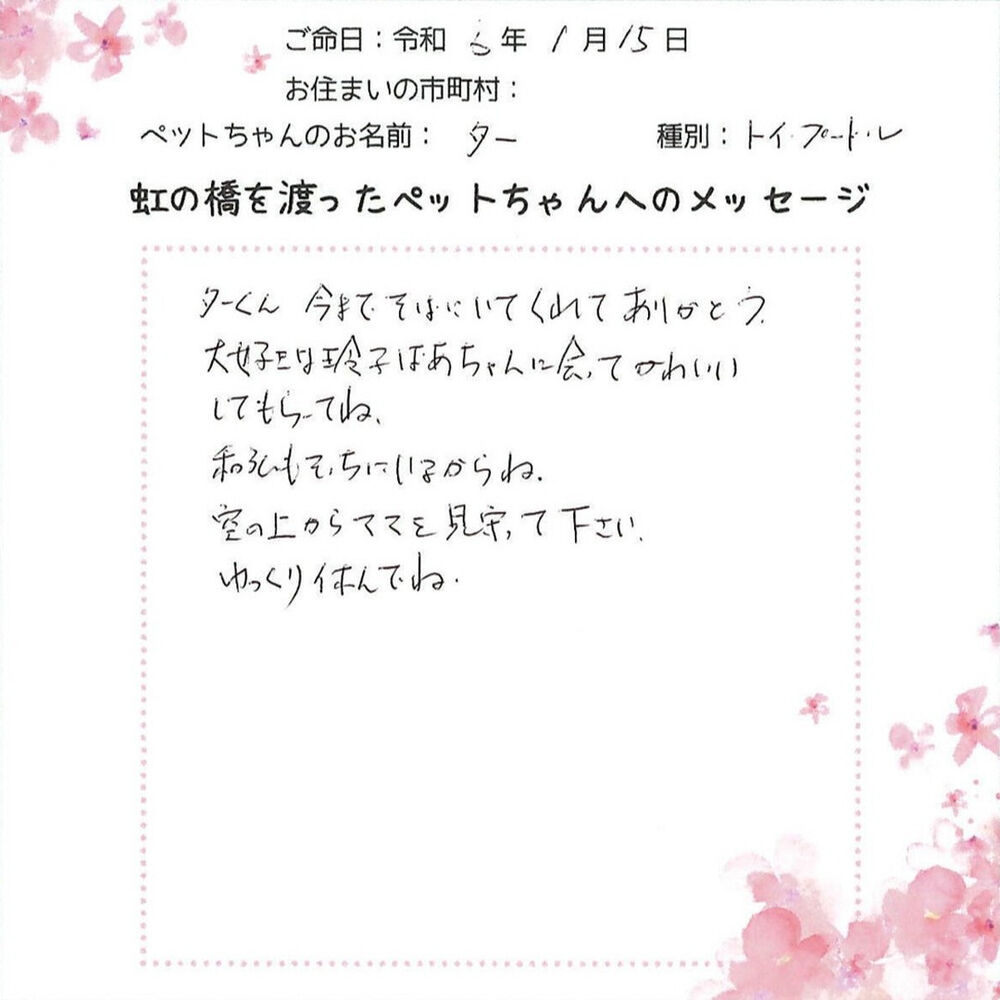 ご命日：令和 6年 1月15日
お住まいの市町村：
ペットちゃんのお名前： ター 種別： トイ・プードル
虹の橋を渡ったペットちゃんへのメッセージ
ターくん 今まで そばにいてくれて ありがとう。
大好きな玲子ばあちゃんに会って かわいい
してもらってね、
和弘もそっちにいるからね.
空の上からママを見守って下さい.
ゆっくり休んでね.